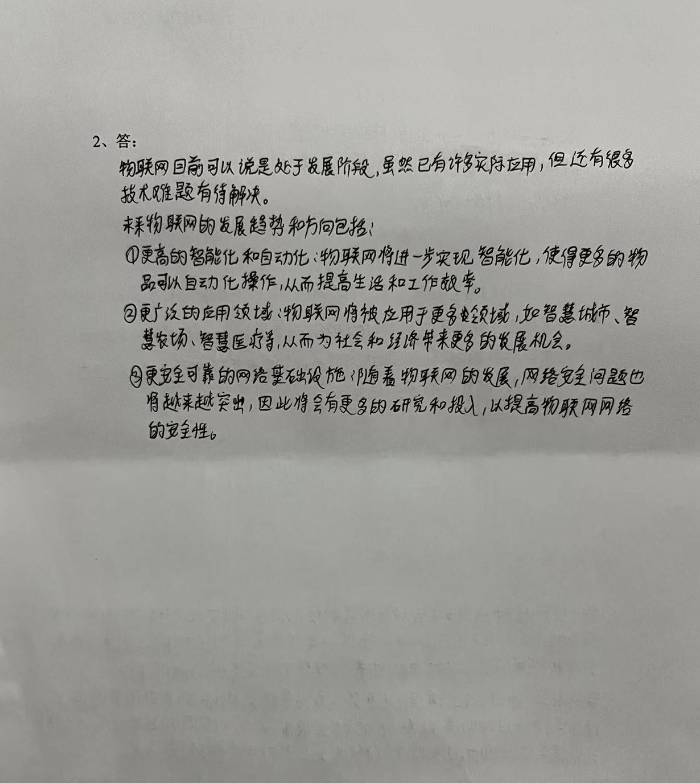 2、答：
物联网目前可以说是处于发展阶段,虽然已有许多实际应用,但还有很多
技术难题有待解决。
未来物联网的发展趋势和方向包括:
①更高的智能化和自动化:物联网将进一步实现智能化,使得更多的物
品可以自动化操作,从而提高生活和工作效率。
②更广泛的应用领域:物联网将被应用于更多领域,如智慧城市、智
慧农场、智慧医疗等,从而为社会和经济带来更多的发展机会。
③更安全可靠的网络基础设施:随着物联网的发展,网络安全问题也
将越来越突出,因此将会有更多的研究和投入,以提高物联网网络
的安全性。